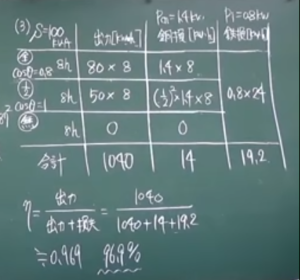 (3) S=100 kVA
出力[kWh]
Pcn=1.4kW
銅損[kWh]
Pi=0.8kW
鉄損[kWh]
cosθ=0.8 8h 80×8 1.4×8
cosθ=1 8h 50×8 (1/2)²×1.4×8 0.8×24
8h 0 0
合計 1040 14 19.2
η = 出力/出力+損失 = 1040/1040+14+19.2
≒0.969 96.9%